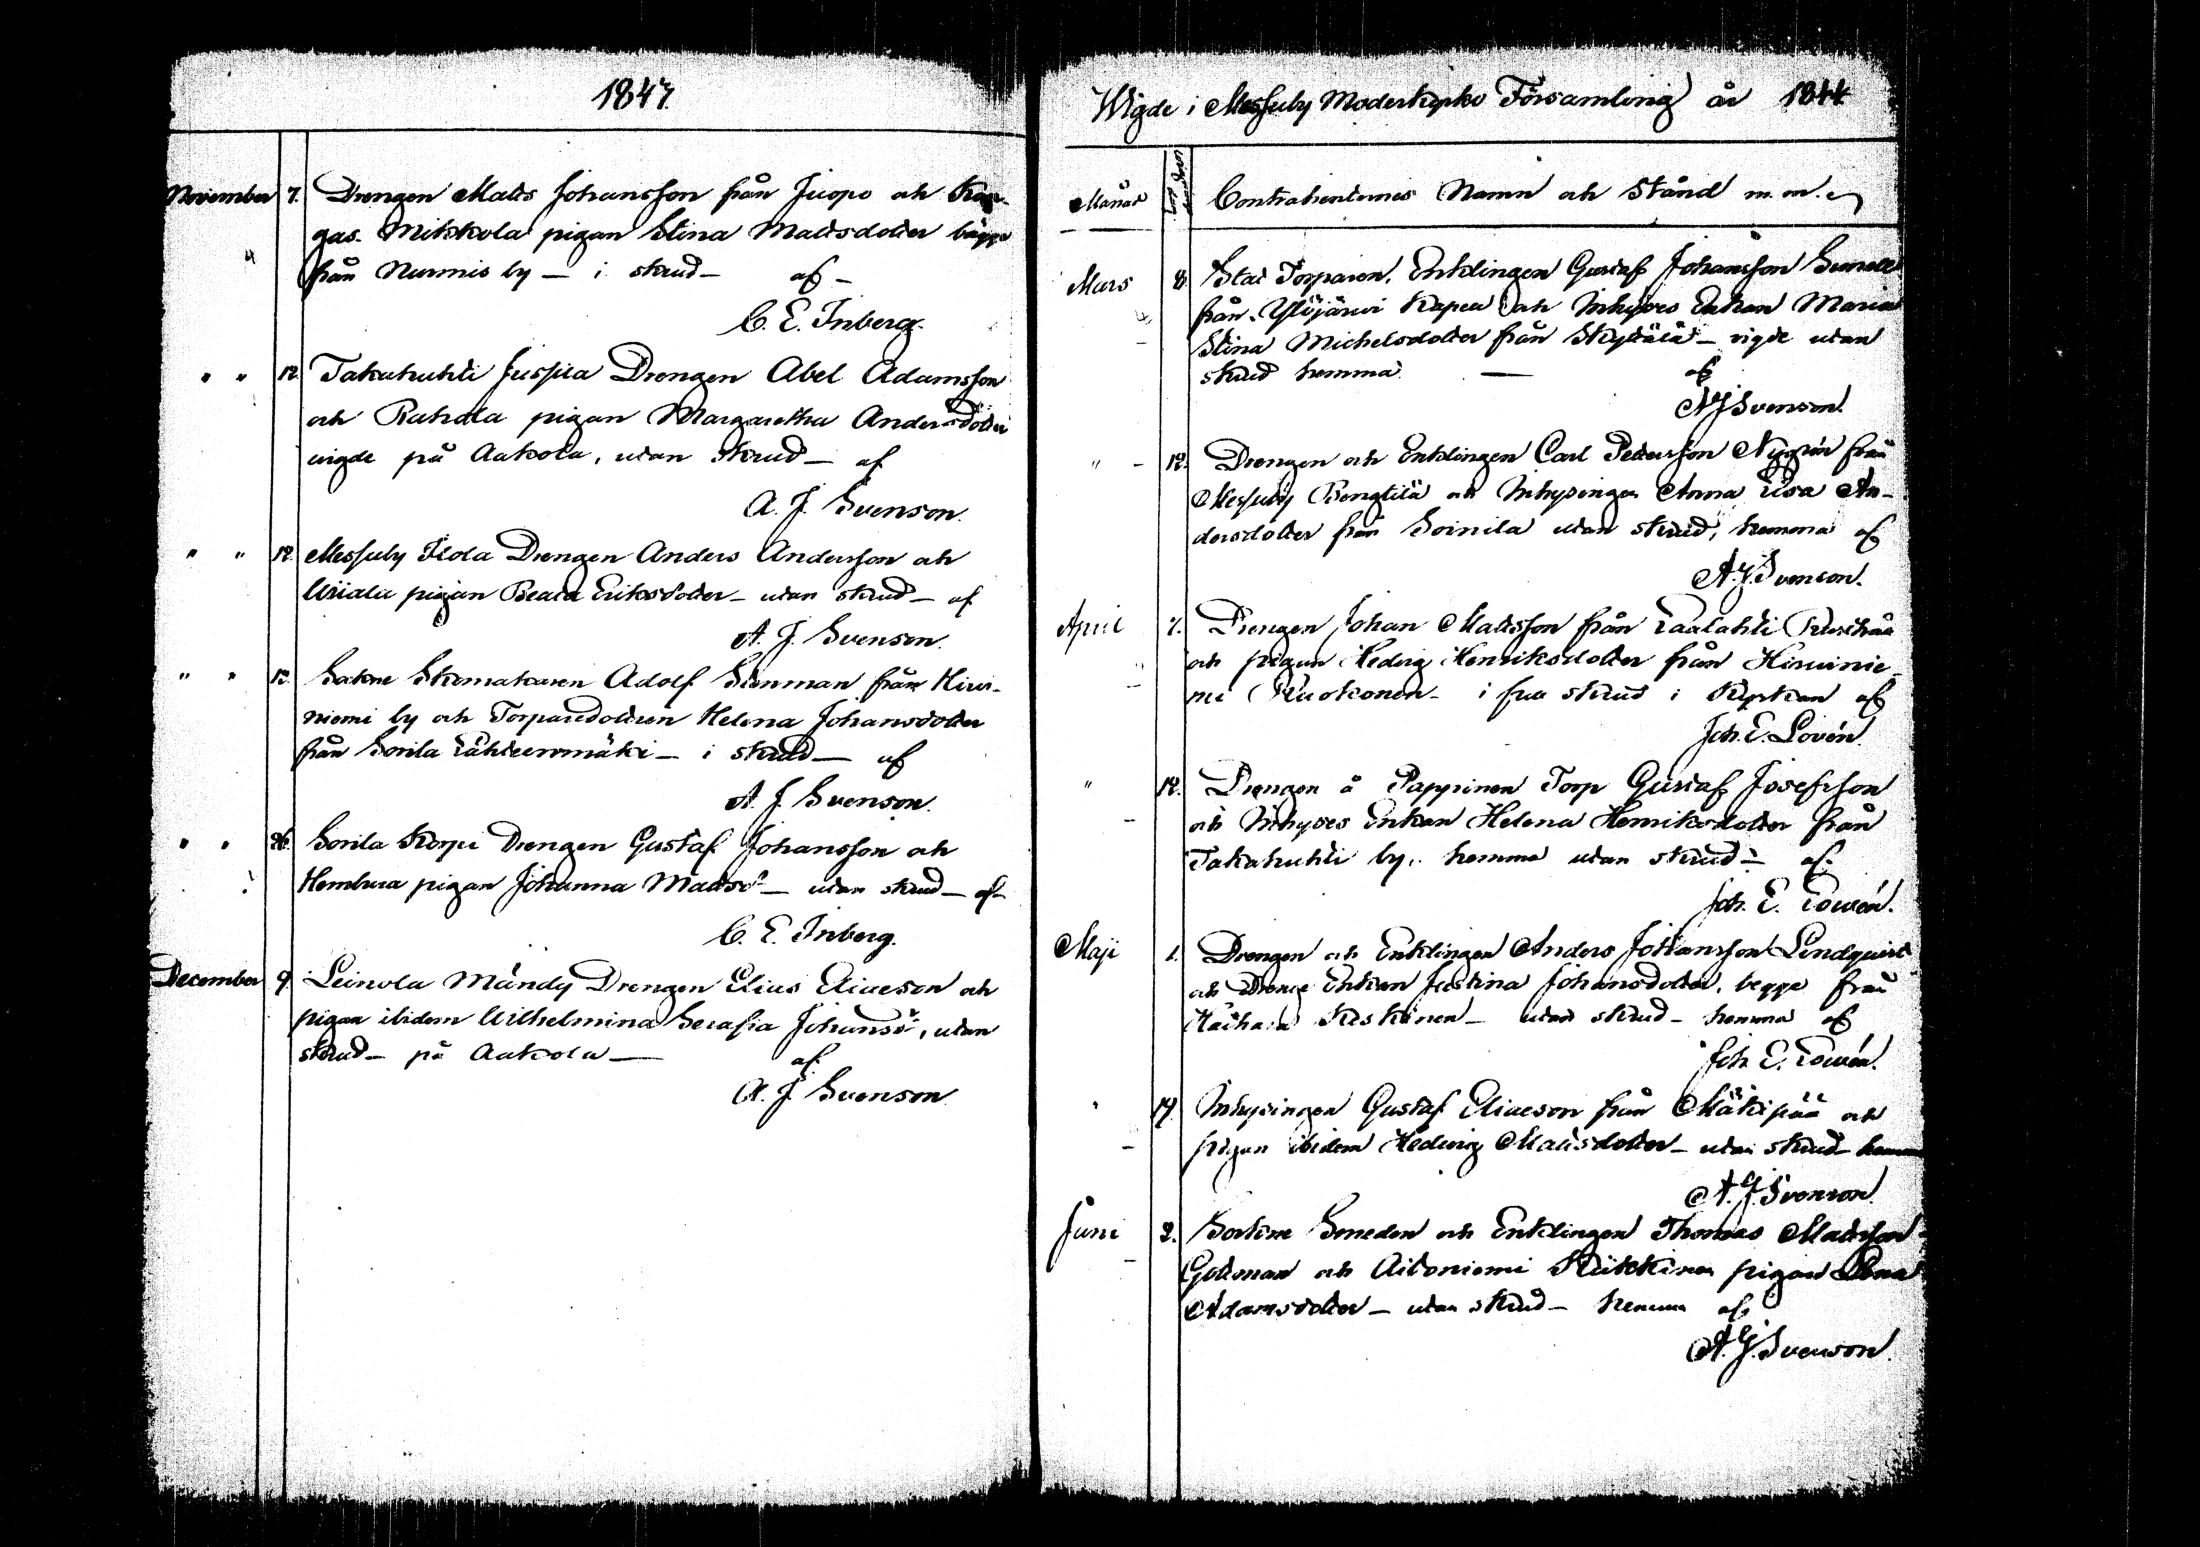 1847.
November 7. Drengen Matts Johansson från Juopo och Kan-
gas. Mikkola pigan Stina Mattsdotter bägge
från Nurmis by — i skrud — af —
C. E. Inberg.
" " 12. Takahuhti Juspila Drengen Abel Adamsson
och Rahola pigan Margaretha Andersdotter
vigde på Aakola, utan skrud — af
A. J. Svenson.
" " 12. Messuby Ilola Drengen Anders Andersson och
Uriala pigan Beata Eriksdotter — utan skrud — af
A. J. Svenson.
" " 12. Sockne Skomakaren Adolf Sunman från Hirvi-
niemi by och Torparedottren Helena Johansdotter
från Sorila Lähteenmäki — i skrud — af
A. J. Svenson.
" " 26. Sorila Korpi Drengen Gustaf Johansson och
pigan Johanna Mattsdr — utan skrud — af
C. E. Inberg.
December 9. Leinola Mändy Drengen Elias Eliaeson och
pigan ibidem Wilhelmina Serafia Johansdr, utan
skrud — på Aakola — af
A. J. Svenson
Wigde i Messuby Moderkyrko Församling år 1844
Månad Contrahenternes Namn och Stånd m. m.
Mars 8. Torparen, Enklingen Gustaf Johansson
från Ylöjärvi Kapell och Inhyses Enkan Maria
Stina Michelsdotter från Skyttälä — vigde utan
skrud hemma — af
A J Svenson.
" - 12. Drengen och Enklingen Carl Pettersson Nygrén från
Messuby Bengtilä och Inhysingen Anna Lisa An-
dersdotter från Soinila utan skrud, hemma af
A. J. Svenson.
April 7. Drengen Johan Mattsson från Laalahti
och pigan Hedvig Henriksdotter från Hirvinie-
mi Ruokonen — i full skrud i Kyrkan af
Joh. E. Lovén.
" 12. Drengen å Pappinen Torp Gustaf Josefsson
och Inhyses Enkan Helena Henriksdotter från
Takahuhti by, hemma utan skrud — af
Joh. E. Lovén.
Maji 1. Drengen och Enklingen Anders Johansson Lindqvist
och Drenge Enkan Justina Johansdotter, begge från
Keskinen — utan skrud — hemma af
Joh E. Lovén.
" 19. Inhysingen Gustaf Eliaeson från Mäkipää och
pigan ibidem Hedvig Mattsdotter — utan skrud hemma
A. J. Svenson.
Juni 2. Sockne Smeden och Enklingen Thomas Mattsson
Gottman och Aitoniemi pigan Lena
Adamsdotter — utan skrud — hemma af
A. J. Svenson.